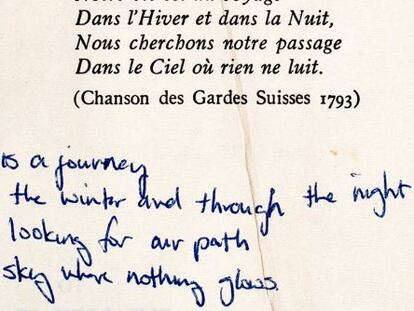 Dans l'Hiver et dans la Nuit,
Nous cherchons notre passage
Dans le Ciel où rien ne luit.
(Chanson des Gardes Suisses 1793)
is a journey
the winter and through the night
looking for our path
sky where nothing glows.